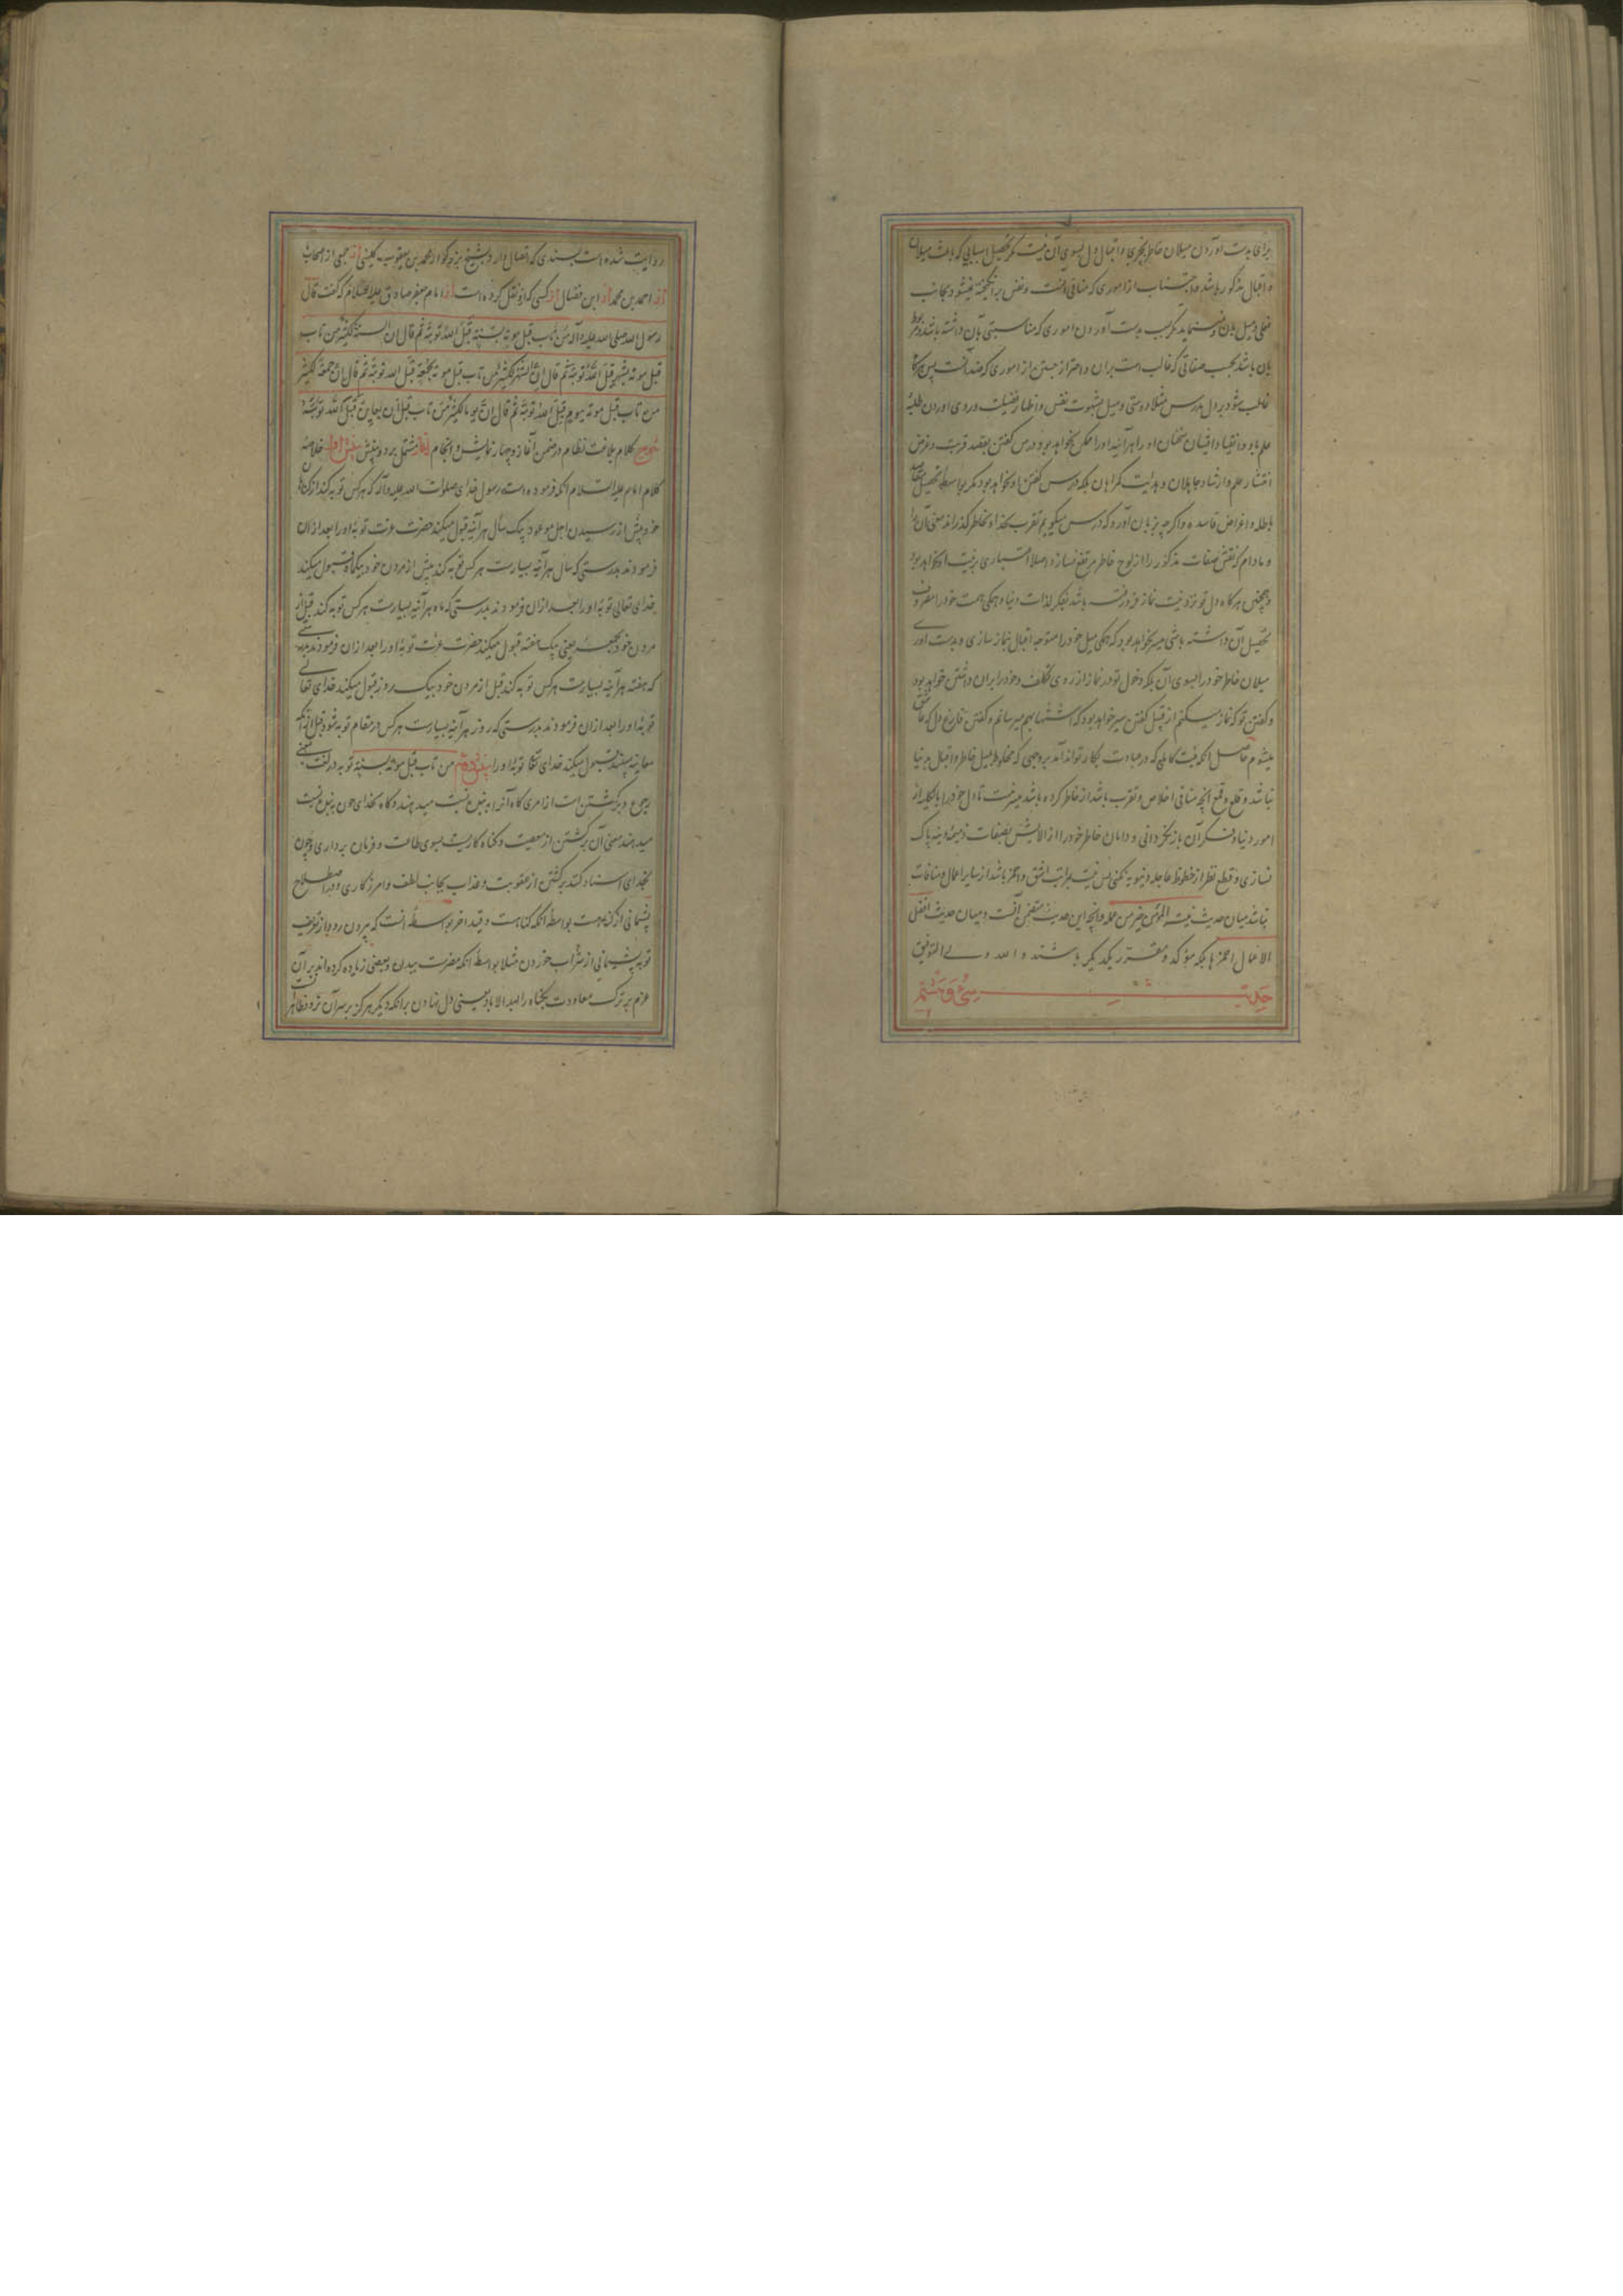 برای بدست آوردن میلان خاطر بچیزی و اقبال دل بسوی آن نیست مگر تحصیل اسبابی که باعث میلان
و اقبال مذکور باشد و اجتناب از اموری که منافی آنست و نفس برانگیخته نمیشود بجانب
فعلی و میل بان نمینماید مگر بسبب بدست آوردن اموری که مناسبتی بآن داشته باشد
بان باشد بحسب صفاتی که غالب است بران و احتراز جستن از اموری که ضد آنست پس هرگاه
غالب شود بر دل مدرس مثلا دوستی و میل بشهوت نفس و اظهار فضیلت و روی آوردن طلبه
علم باو و انقیاد ایشان او را هرآینه او را ممکن نخواهد بود درس گفتن بقصد قربت و غرض
انتشار علم و ارشاد جاهلان و هدایت گمراهان بلکه درس گفتن او نخواهد بود مگر بواسطه تحصیل مقاصد
باطله و اغراض فاسده و اگرچه بزبان آورد که درس میگویم تقرب بخدا و بخاطر گذراند معنی آنرا
و مادام که نقش صفات مذکور را از لوح خاطر مرتفع نسازد اصلا اعتباری بنیت او نخواهد بود
و همچنین هرگاه دل تو نزد نیت نماز فرورفته باشد بفکر لذات دنیا و همگی همت خود را مصروف
تحصیل آن داشته باشی میسر نخواهد بود که همگی میل خود را متوجه اقبال نماز سازی و بدست آوری
میلان خاطر خود را بسوی آن بلکه دخول تو در نماز از روی تکلف و خود را بران داشتن خواهد بود
و گفتن تو که نماز میکنم از قبیل گفتن سیر خواهد بود که اشتها بهم میرسانم و گفتن فارغ دل که عاشق
میشوم حاصل آنکه نیت کاملی که در عبادت بکار تواند آمد بروجهی که مخلوط بمیل خاطر و اقبال بر دنیا
نباشد و قلع و قمع آنچه منافی اخلاص و تقرب باشد از خاطر کرده باشد میسر نیست تا دل خود را بالکلیه از
امور دنیا و فکر آن بازنگردانی و دامان خاطر خود را از آلایش بصفات ذمیمه دنیه پاک
نسازی و قطع نظر از حظوظ عاجله دنیویه نکنی پس نیت بمراتب اشق و احمز باشد از سایر اعمال و منافات
نباشد میان حدیث نیة المؤمن خیر من عمله و آنچه این حدیث متضمن آنست و میان حدیث افضل
الاعمال احمزها بلکه مؤکد و مقرر یکدیگر باشند و الله ولی التوفیق
حدیث سی و هشتم
روایت شده است بسندی که اتصال دارد بشیخ بزرگوار محمد بن یعقوب کلینی از جمعی از اصحاب
از احمد بن محمد از ابن فضال از کسی که ازو نقل کرده است از امام جعفر صادق علیه السلام که گفت قال
رسول الله صلی الله علیه و آله من تاب قبل موته بسنة قبل الله توبته ثم قال ان السنة لکثیر من تاب
قبل موته بشهر قبل الله توبته ثم قال ان الشهر لکثیر من تاب قبل موته بجمعة قبل الله توبته ثم قال ان جمعة لکثیر
من تاب قبل موته بیوم قبل الله توبته ثم قال ان یوما لکثیر من تاب قبل ان یعاین قبل الله توبته
شرح کلام بلاغت نظام در ضمن آغاز و چهار نمایش و انجام آغاز مشتمل بر دو بینش بینش اول خلاصه
کلام امام علیه السلام آنکه فرموده است رسول خدای صلوات الله علیه و آله که هر کس توبه کند از گناه
خود پیش از رسیدن اجل موعود بیک سال هرآینه قبول میکند حضرت عزت توبه او را بعد از ان
فرمودند بدرستی که سال هرآینه بسیارست هر کس توبه کند پیش از مردن خود بیکماه قبول میکند
خدای تعالی توبه او را بعد از ان فرمودند بدرستی که ماه هرآینه بسیارست هر کس توبه کند قبل از
مردن خود بجمعه یعنی یک هفته قبول میکند حضرت عزت توبه او را بعد از ان فرمودند بدرستی
که هفته هرآینه بسیارست هر کس توبه کند قبل از مردن خود بیک روز قبول میکند خدای تعالی
توبه او را بعد از ان فرمودند بدرستی که روز هرآینه بسیارست هر کس در مقام توبه شود قبل از آنکه
معاینه بیند قبول میکند خدای تعا توبه او را بینش دوم من تاب قبل موته بسنة توبه در لغت بمعنی
رجوع و برگشتن است از امری گاه آنرا به بنده نسبت میدهند و گاه بخدای چون ببنده نسبت
میدهند معنی آن برگشتن از معصیت و گناه کاریست بسوی طاعت و فرمان برداری و چون
بخدای اسناد کنند برگشتن از عقوبت و عذاب بجانب لطف و امرزگاری و در اصطلاح
پشیمانی از گناهست بواسطه آنکه گناهست و قید آخر بواسطه آنست که بیرون رود از تعریف
توبه پشیمانی از شراب خوردن مثلا بواسطه آنکه مضرت ببدن و بعضی زیاده کرده‌اند بر آن
عزم بر ترک معاودت بگناه را ابد الاباد یعنی دل نهادن برآنکه دیگر هرگز بر سر آن نرود و ظاهر